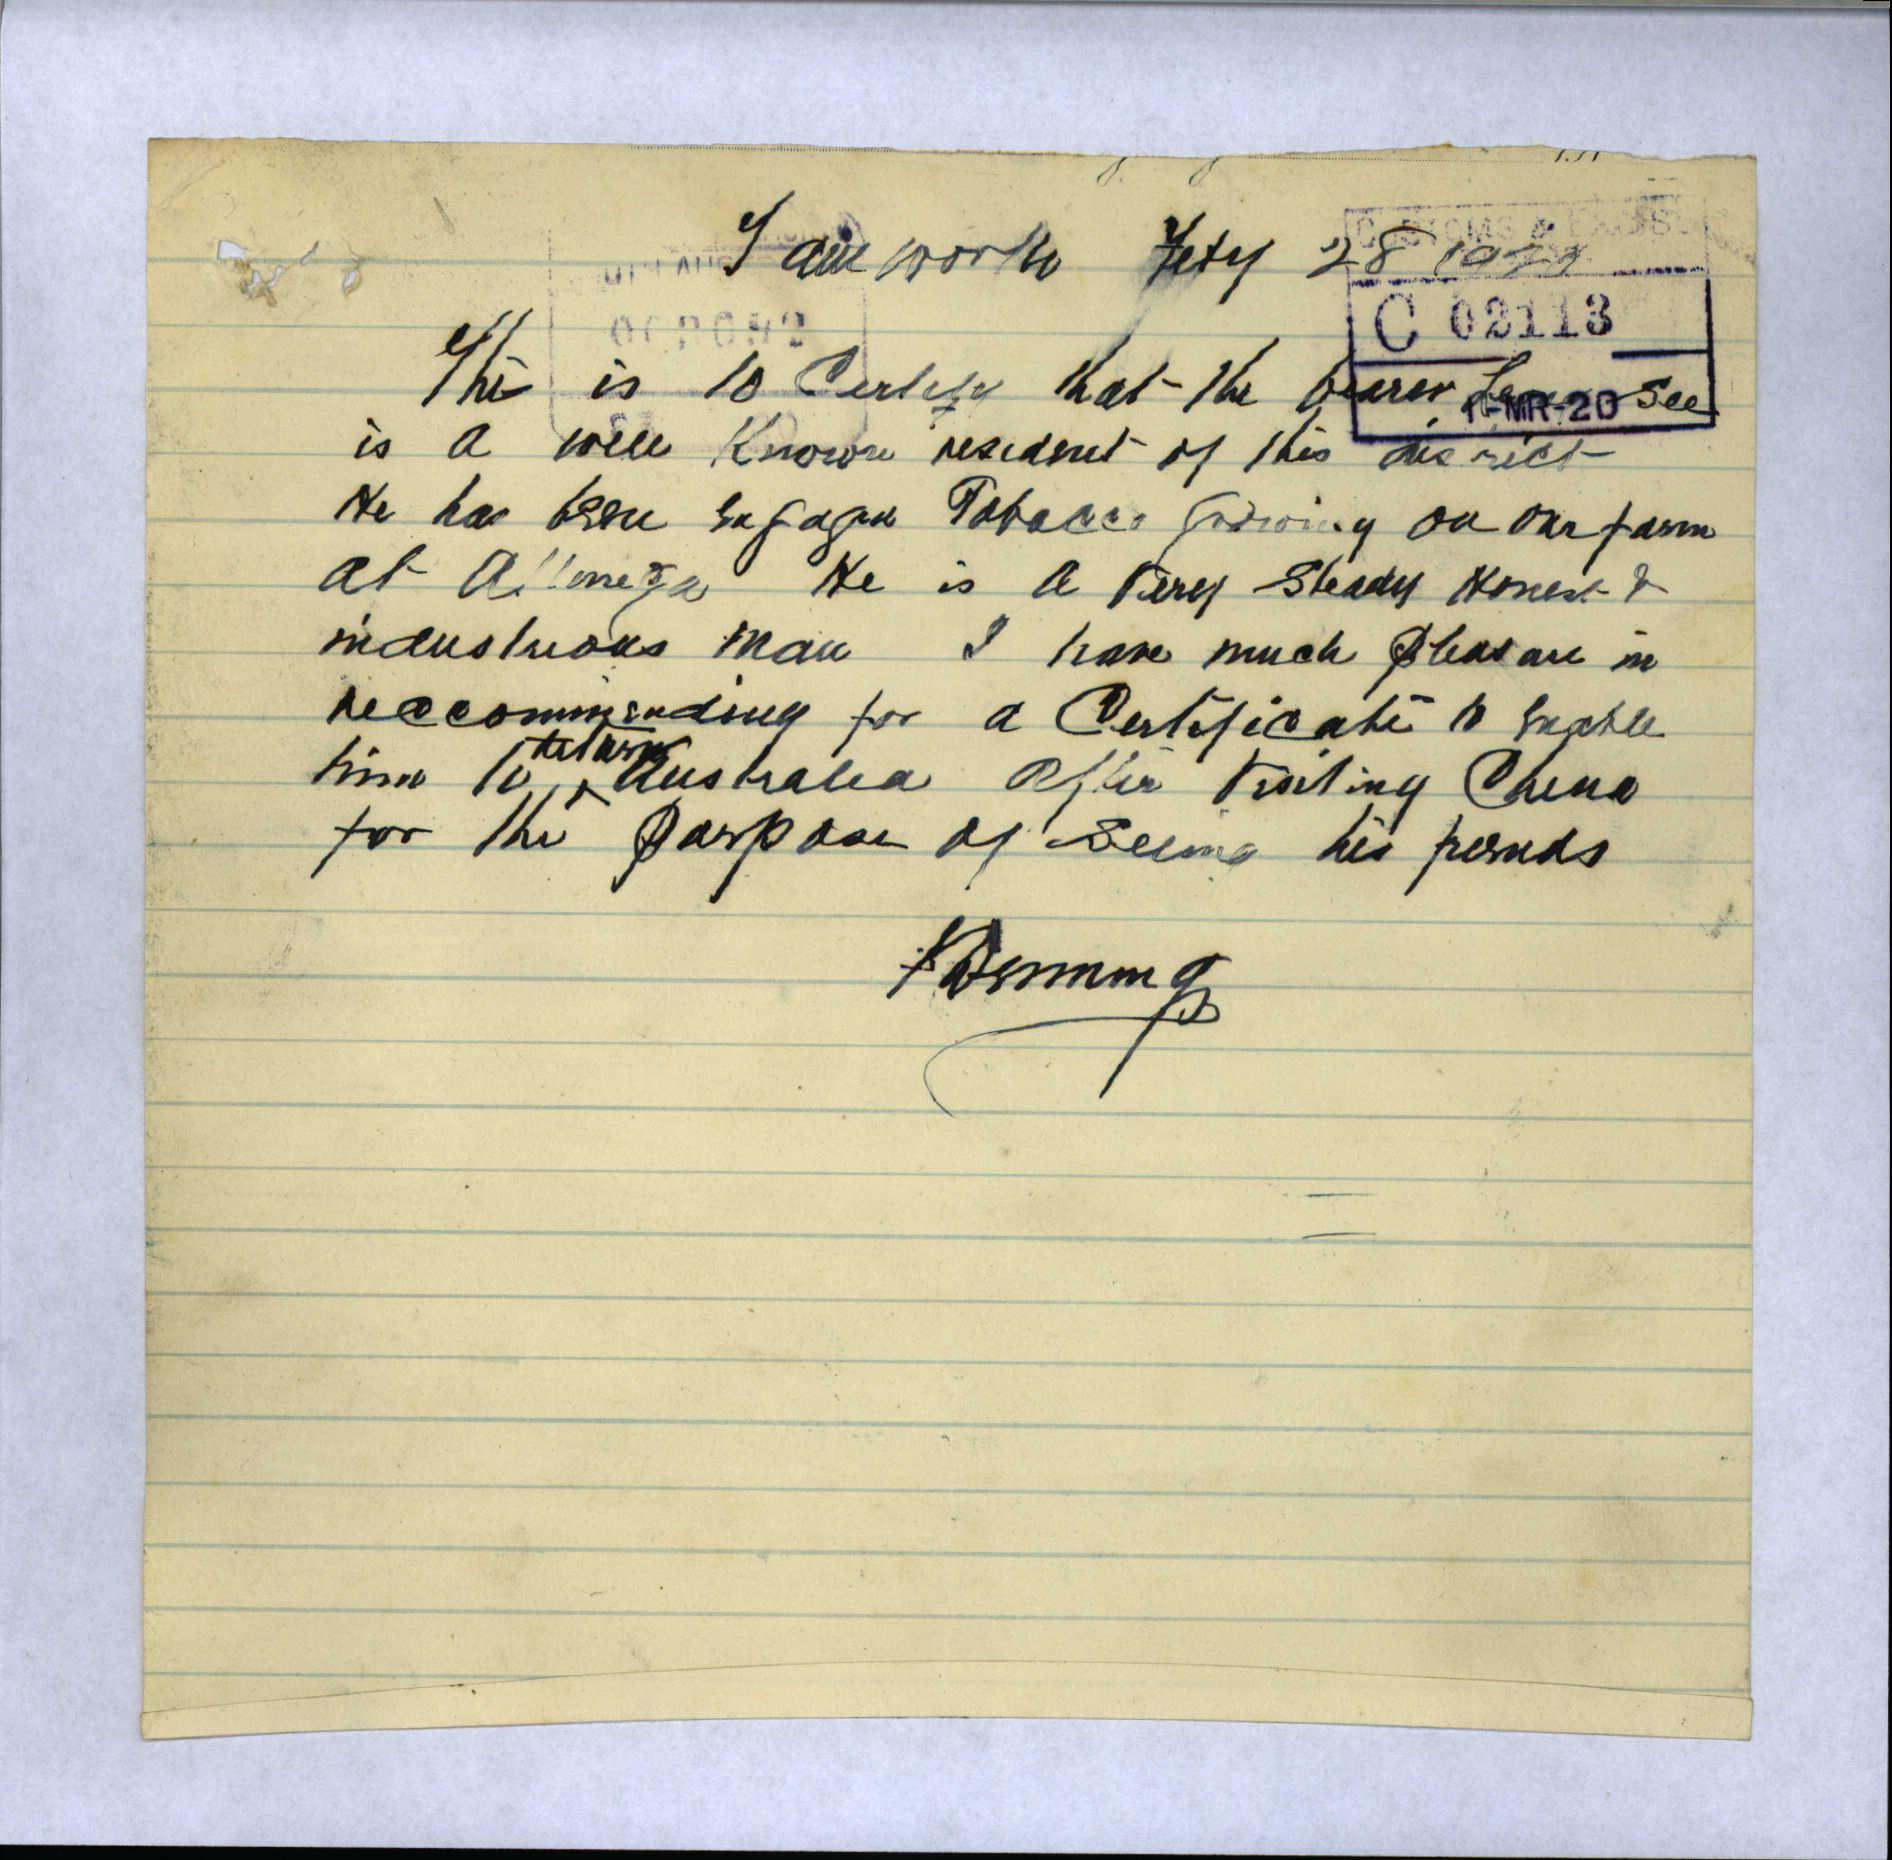 Tamworth Feby 28 1920
CUSTOMS & EXCISE
C 02113
1-MR-20
This is to Certify that the bearer See
is a well Known resident of this district
He has been Engaged Tobacco Growing on our farm
at He is a Very Steady Honest &
industrious Man I have much Pleasure in
reccommending for a Certificate to Enable
him to return Australia after Visiting China
for the Purpose of Seeing his friends